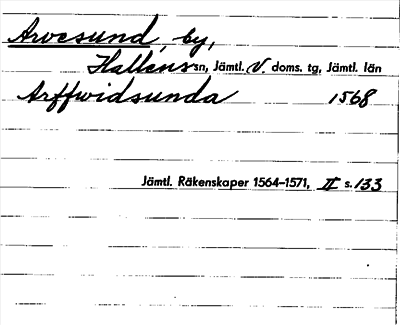 Arvesund, by,
Hallens sn, Jämtl. V. doms. tg, Jämtl. län
Arffwidsunda 1568
Jämtl. Räkenskaper 1564–1571, II s. 133